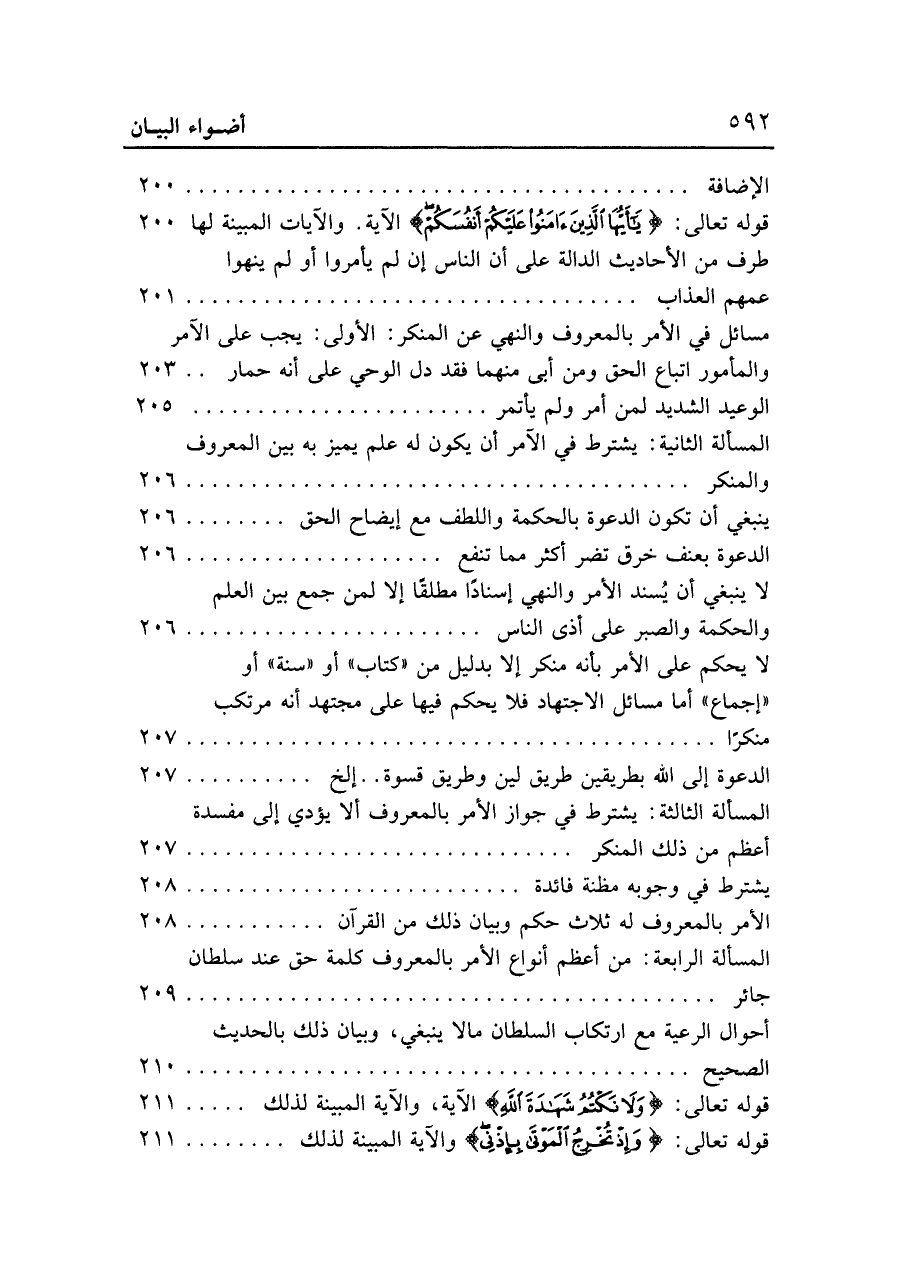 ٥٩٢ أضواء البيان
الإضافة ....................................... ٢٠٠
قوله تعالى: ﴿ يَٰٓأَيُّهَا ٱلَّذِينَ ءَامَنُوا۟ عَلَيْكُمْ أَنفُسَكُمْ ۖ﴾ الآية. والآيات المبينة لها ٢٠٠
طرف من الأحاديث الدالة على أن الناس إن لم يأمروا أو لم ينهوا
عمهم العذاب ................................... ٢٠١
مسائل في الأمر بالمعروف والنهي عن المنكر: الأولى: يجب على الآمر
والمأمور اتباع الحق ومن أبى منهما فقد دل الوحي على أنه حمار .. ٢٠٣
الوعيد الشديد لمن أمر ولم يأتمر ....................... ٢٠٥
المسألة الثانية: يشترط في الآمر أن يكون له علم يميز به بين المعروف
والمنكر ....................................... ٢٠٦
ينبغي أن تكون الدعوة بالحكمة واللطف مع إيضاح الحق ........ ٢٠٦
الدعوة بعنف خرق تضر أكثر مما تنفع .................... ٢٠٦
لا ينبغي أن يُسند الأمر والنهي إسنادًا مطلقًا إلا لمن جمع بين العلم
والحكمة والصبر على أذى الناس ....................... ٢٠٦
لا يحكم على الأمر بأنه منكر إلا بدليل من «كتاب» أو «سنة» أو
«إجماع» أما مسائل الاجتهاد فلا يحكم فيها على مجتهد أنه مرتكب
منكرًا ......................................... ٢٠٧
الدعوة إلى الله بطريقين طريق لين وطريق قسوة..إلخ .......... ٢٠٧
المسألة الثالثة: يشترط في جواز الأمر بالمعروف ألا يؤدي إلى مفسدة
أعظم من ذلك المنكر .............................. ٢٠٧
يشترط في وجوبه مظنة فائدة .......................... ٢٠٨
الأمر بالمعروف له ثلاث حكم وبيان ذلك من القرآن ........... ٢٠٨
المسألة الرابعة: من أعظم أنواع الأمر بالمعروف كلمة حق عند سلطان
جائر ......................................... ٢٠٩
أحوال الرعية مع ارتكاب السلطان مالا ينبغي، وبيان ذلك بالحديث
الصحيح ....................................... ٢١٠
قوله تعالى: ﴿ وَلَا نَكْتُمُ شَهَٰدَةَ ٱللَّهِ﴾ الآية، والآية المبينة لذلك ..... ٢١١
قوله تعالى: ﴿ وَإِذْ تُخْرِجُ ٱلْمَوْتَىٰ بِإِذْنِى ۖ﴾ والآية المبينة لذلك ........ ٢١١